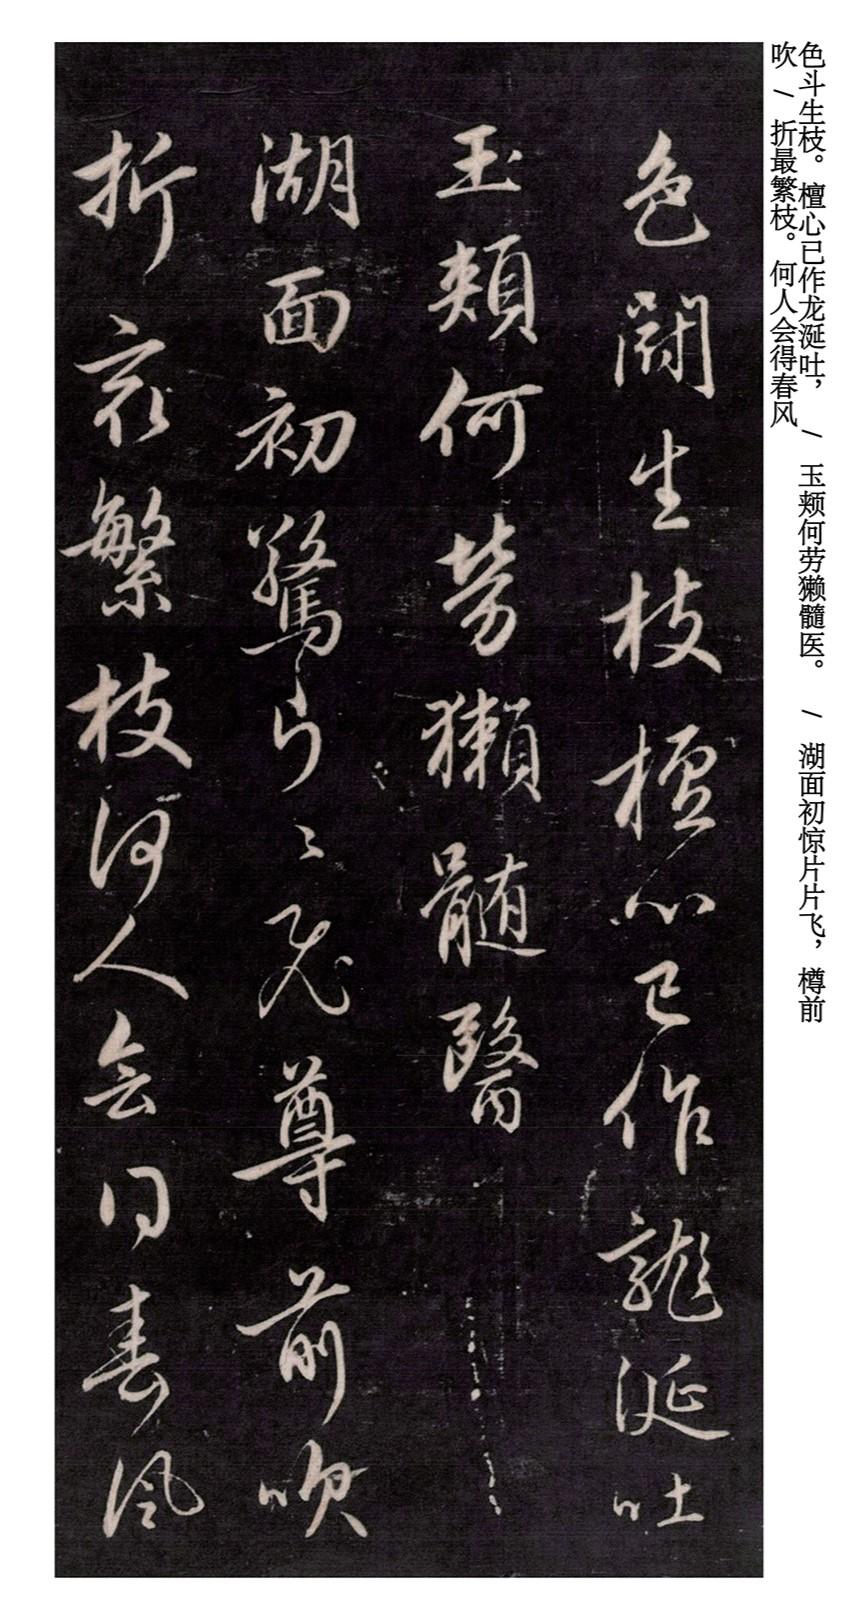 色斗生枝。檀心已作龙涎吐， / 玉颊何劳獭髓医。 / 湖面初惊片片飞，樽前
吹 / 折最繁枝。何人会得春风
色鬪生枝檀心已作龍涎吐
玉頰何勞獺髓醫
湖面初驚片〻飛尊前吹
折㝡繁枝何人會得春風